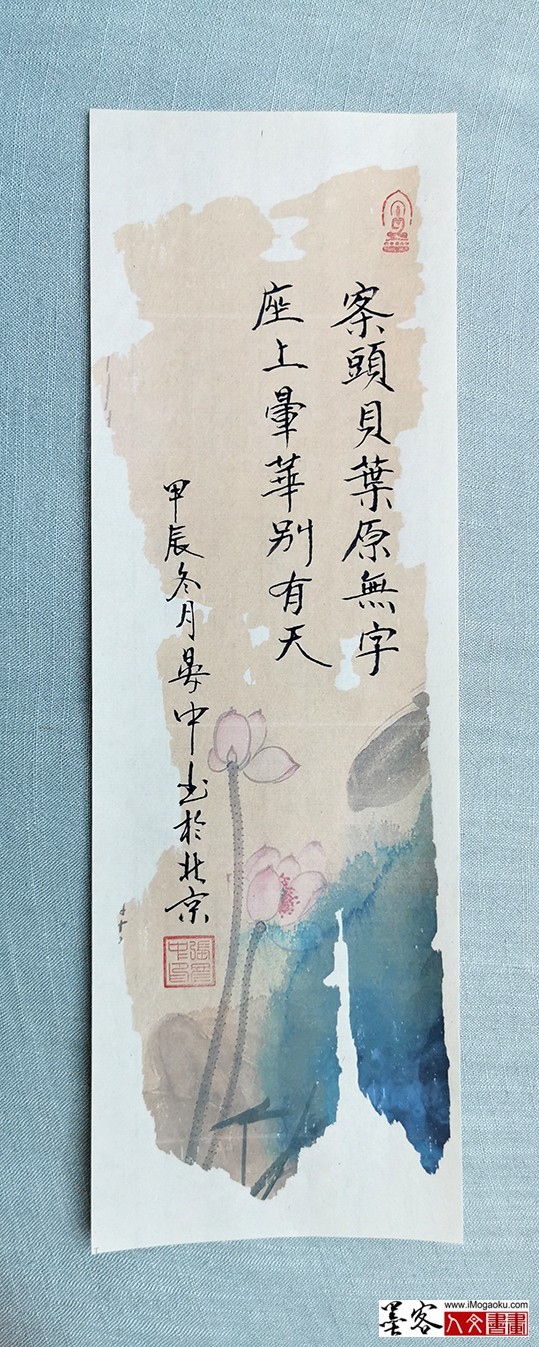 案頭貝葉原無字
座上暈華别有天
甲辰冬月中书於北京
墨客
www.iMogaoku.com
人文書畫